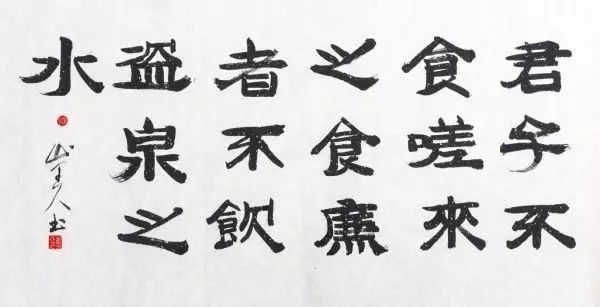 君子不
食嗟來
之食廉
者不飲
盜泉之
水
山 人书